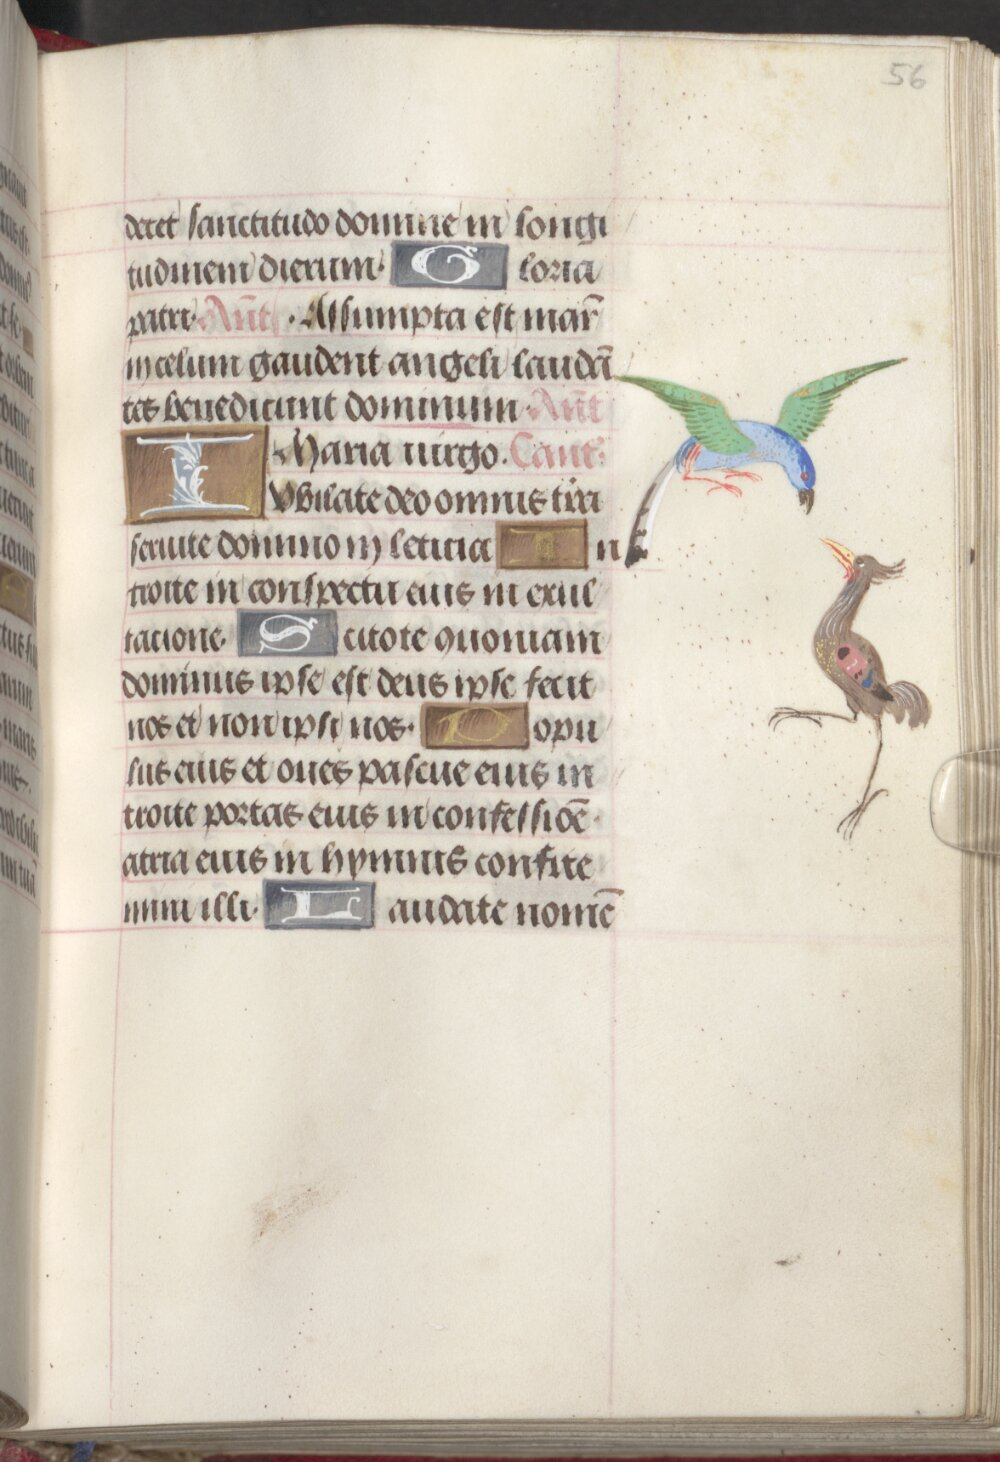 56
decet sanctitudo domine in longi
tudinem dierum. Gloria
patri. Ant̄. Assumpta est mar̄
in celum gaudent angeli laudā
tes benedicunt dominum. Ant̄
Maria uirgo. Cant:
IVbilate deo omnis t̄ra
seruite domino in leticia In
troite in conspectu eius in exul
tacione. Scitote quoniam
dominus ipse est deus ipse fecit
nos et non ipsi nos. Popu
lus eius et oues pascue eius in
troite portas eius in confessiōe
atria eius in hymnis confite
mini illi. Laudate nomē